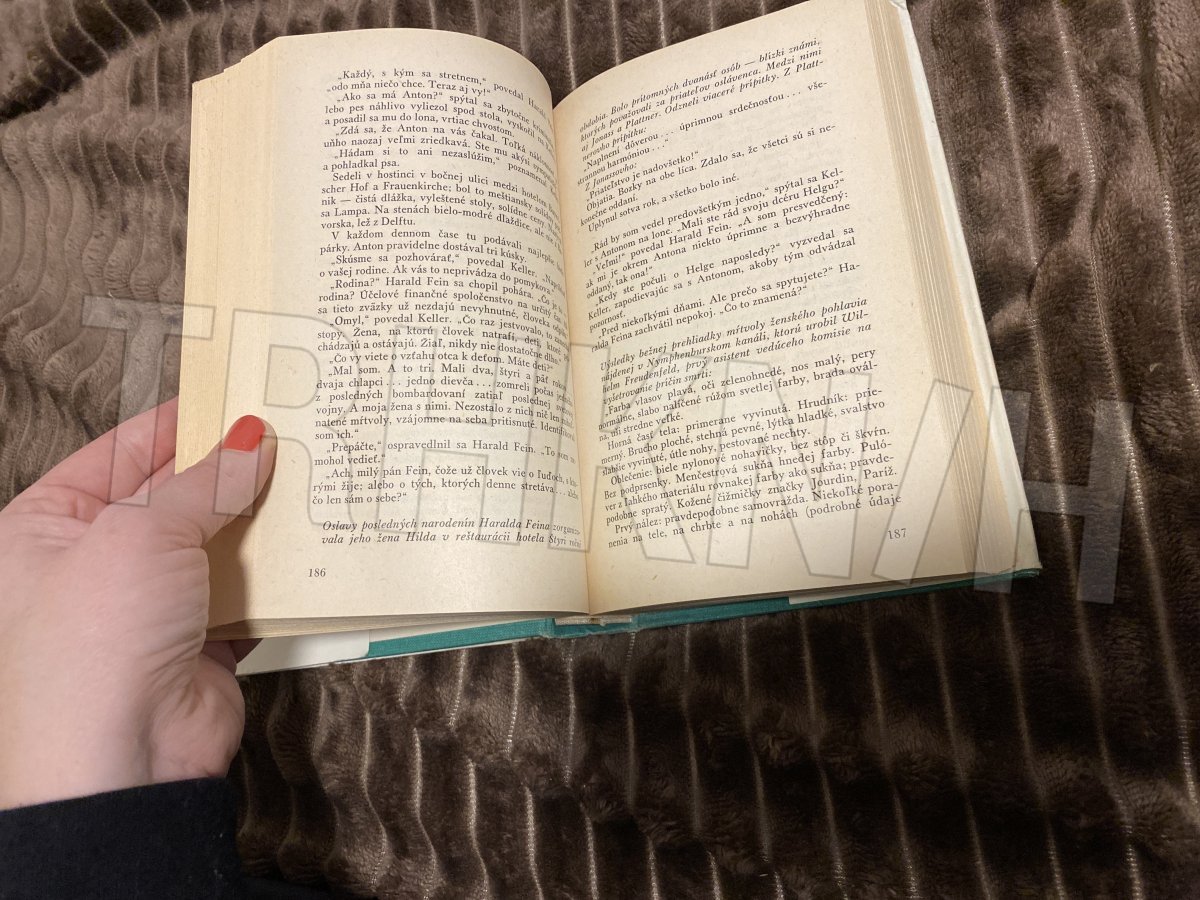 „Každý, s kým sa stretnem,“ povedal Harald
„odo mňa niečo chce. Teraz aj vy!“
„Ako sa má Anton?“ spýtal sa zbytočne
lebo pes náhlivo vyliezol spod stola, vyskočil na
a posadil sa mu do lona, vrtiac chvostom.
„Zdá sa, že Anton na vás čakal. Toľká
uňho naozaj veľmi zriedkavá. Ste mu akýsi
„Hádam si to ani nezaslúžim,“ poznamenal
a pohladkal psa.
Sedeli v hostinci v bočnej ulici medzi hotelom
scher Hof a Frauenkirche; bol to meštiansky solídny
nik — čistá dlážka, vyleštené stoly, solídne ceny.
sa Lampa. Na stenách bielo-modré dlaždice, ale nie
vorska, lež z Delftu.
V každom dennom čase tu podávali najlepšie
párky. Anton pravidelne dostával tri kúsky.
„Skúsme sa pozhovárať,“ povedal Keller.
o vašej rodine. Ak vás to neprivádza do pomykova.“
„Rodina?“ Harald Fein sa chopil pohára. „Čo je
rodina? Účelové finančné spoločenstvo na určitý
sa tieto zväzky už nezdajú nevyhnutné, človeka
„Omyl,“ povedal Keller. „Čo raz jestvovalo, to
stopy. Žena, na ktorú človek natrafí, deti, ktoré
chádzajú a ostávajú. Žiaľ, nikdy nie dostatočne dlho.“
„Čo vy viete o vzťahu otca k deťom. Máte deti?“
„Mal som. A to tri. Mali dva, štyri a päť rokov
dvaja chlapci... jedno dievča... zomreli počas jedného
z posledných bombardovaní zatiaľ poslednej
vojny. A moja žena s nimi. Nezostalo z nich nič len
natené mŕtvoly, vzájomne na seba pritisnuté.
som ich.“
„Prepáčte,“ ospravedlnil sa Harald Fein. „To som
mohol vedieť.“
„Ach, milý pán Fein, čože už človek vie o ľuďoch, s
rými žije; alebo o tých, ktorých denne stretáva...
čo len sám o sebe?“
Oslavy posledných narodenín Haralda Feina zorganizo-
vala jeho žena Hilda v reštaurácii hotela Štyri
186
obdobia. Bolo prítomných dvanásť osôb — blízki známi,
ktorých považovali za priateľov oslávenca. Medzi nimi
aj Jonass a Plattner. Odzneli viaceré prípitky. Z Platt-
nerovho prípitku:
„Naplnení dôverou... úprimnou srdečnosťou... vše-
strannou harmóniou...“
Z Jonassovho:
„Priateľstvo je nadovšetko!“
Objatia. Bozky na obe líca. Zdalo sa, že všetci sú si ne-
konečne oddaní.
Uplynul sotva rok, a všetko bolo iné.
„Rád by som vedel predovšetkým jedno,“ spýtal sa Kel-
ler s Antonom na lone. „Mali ste rád svoju dcéru Helgu?“
„Veľmi!“ povedal Harald Fein. „A som presvedčený:
ak mi je okrem Antona niekto úprimne a bezvýhradne
oddaný, tak ona!“
„Kedy ste počuli o Helge naposledy?“ vyzvedal sa
Keller, zapodievajúc sa s Antonom, akoby tým odvádzal
pozornosť.
„Pred niekoľkými dňami. Ale prečo sa spytujete?“ Ha-
ralda Feina zachvátil nepokoj. „Čo to znamená?“
Výsledky bežnej prehliadky mŕtvoly ženského pohlavia
nájdenej v Nymphenburskom kanáli, ktorú urobil Wil-
helm Freudenfeld, prvý asistent vedúceho komisie na
vyšetrovanie príčin smrti:
„Farba vlasov plavá, oči zelenohnedé, nos malý, pery
normálne, slabo nalíčené rúžom svetlej farby, brada ovál-
na, uši stredne veľké.
Horná časť tela: primerane vyvinutá. Hrudník: prie-
merný. Brucho ploché, stehná pevné, lýtka hladké, svalstvo
slabšie vyvinuté, útle nohy, pestované nechty.
Oblečenie: biele nylonové nohavičky, bez stôp či škvŕn.
Bez podprsenky. Menčestrová sukňa hnedej farby. Puló-
ver z ľahkého materiálu rovnakej farby ako sukňa; pravde-
podobne spratý. Kožené čižmičky značky Jourdin, Paríž.
Prvý nález: pravdepodobne samovražda. Niekoľké pora-
nenia na tele, na chrbte a na nohách (podrobné údaje
187
TRHKNÍH